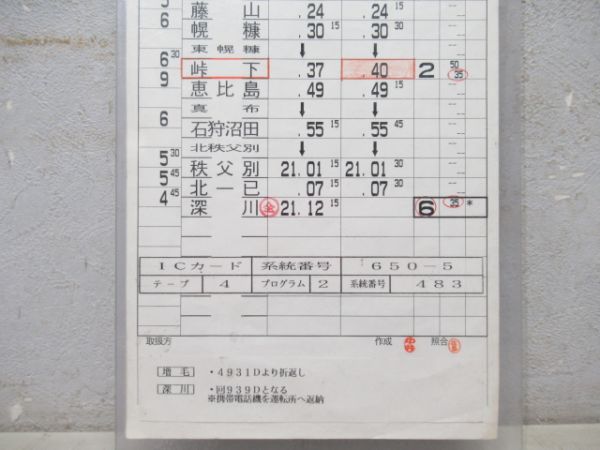 5 藤山 .24 .24 15
6 幌糠 .30 15 .30 30
東幌糠 ↓ ↓
6 30 峠下 .37 .40 2 50 35
9 恵比島 .49 .49 15
真布
6 石狩沼田 .55 15 .55 45
北秩父別 ↓ ↓
5 30 秩父別 21.01 15 21.01 30
5 45 北一已 .07 15 .07 30
4 45 深川 全 21.12 15 6 35 *
ICカード 系統番号 650-5
テープ 4 プログラム 2 系統番号 483
取扱方 作成 照合
増毛 ・4931Dより折返し
深川 ・回939Dとなる
※携帯電話機を運転所へ返納